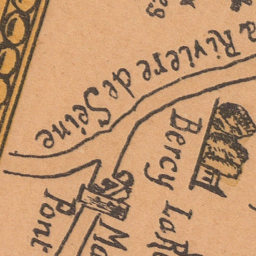 a Riviere de Seine
Bercy
La R
Pont
Ma
es